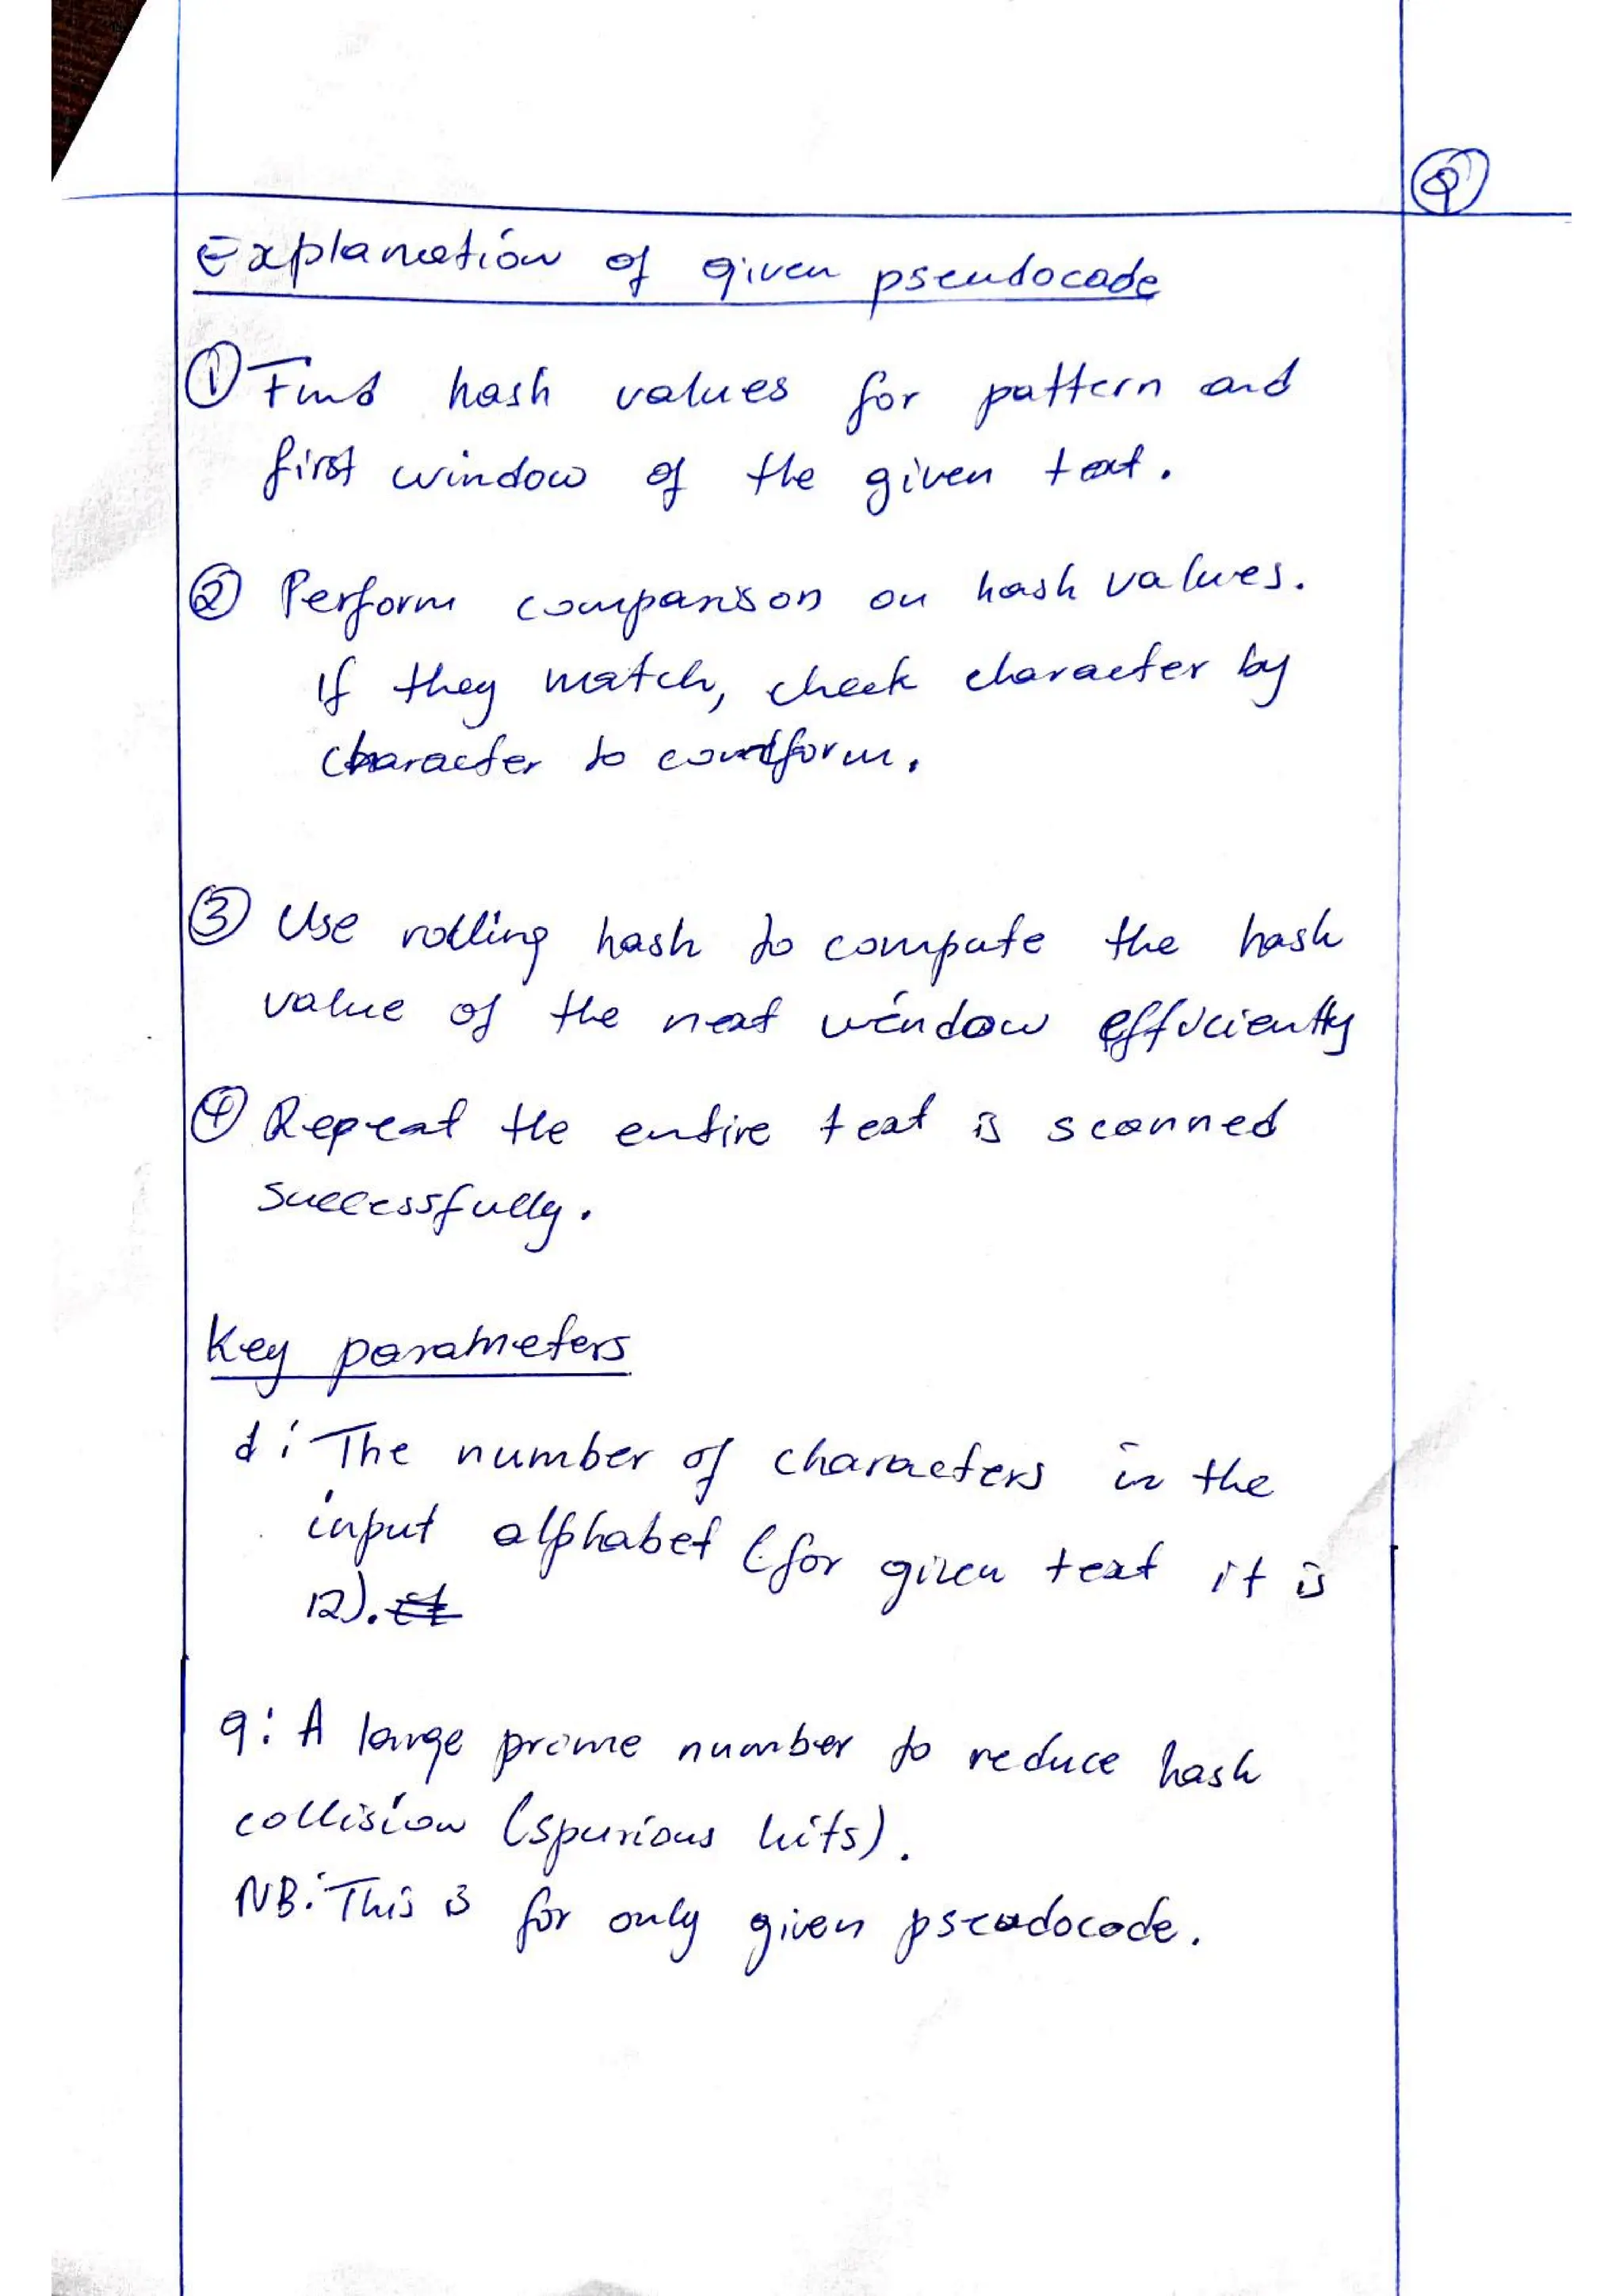 Explanation of given pseudocode
① Find hash values for pattern and
first window of the given text.
② Perform comparison on hash values.
If they match, check character by
character to
③ Use rolling hash to compute the hash
value of the next window efficiently
④ Repeat the entire text is scanned
successfully.
Key parameters
d: The number of characters in the
input alphabet (for given text it is
12).
q: A large prime number to reduce hash
collision (spurious hits).
NB: This is for only given pseudocode.